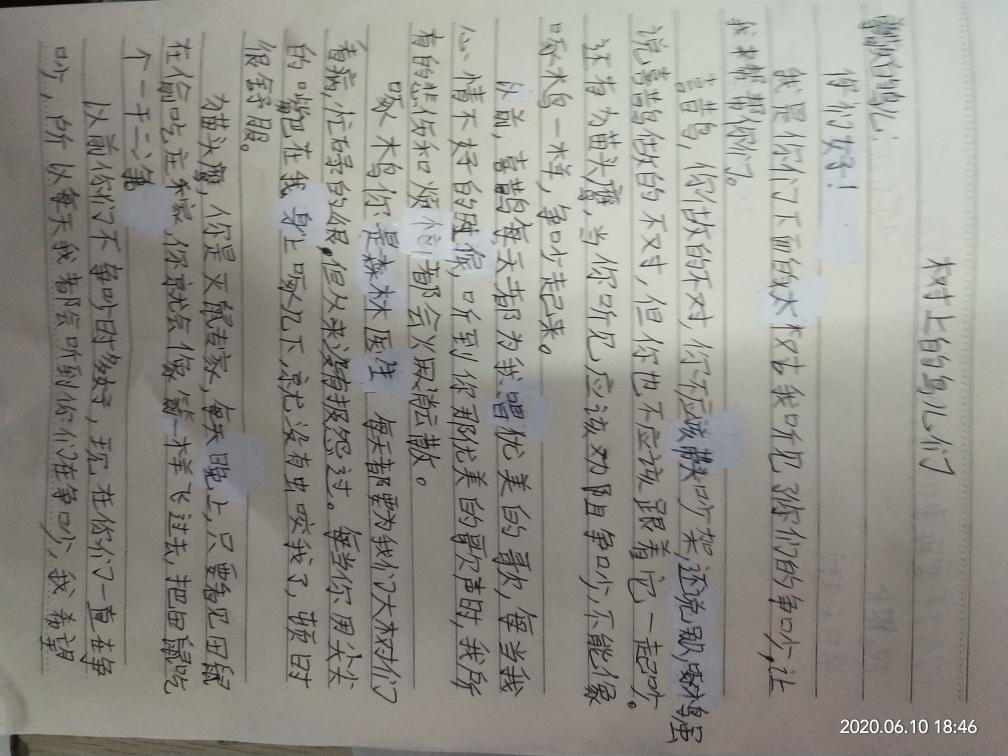 树上的鸟儿们
亲爱的鸟儿:
你们好!
我是你们下面的大树。我听见了你们的争吵,让
我来帮帮你们。
喜昔鸟,你做的不对,你不应该散吵架,还说是啄木鸟虫
说喜鹊做的不对,但你也不应该跟着它一起吵。
还有猫头鹰,当你听见,应该劝阻争吵不能像
啄木鸟一样,争吵起来。
以前,喜鹊每天都为我唱优美的歌,每当我
心情不好的时候,听到你那优美的歌声时,我所
有的悲伤和烦都会火烟消云散。
啄木鸟你是森林医生,每天都要为我们大树们
看病,忙碌的很。但从来没有报怨过。每当你用尖尖
的嘴巴在我身上啄几下,就没有虫咬我了,顿时
很舒服。
猫头鹰,你是灭鼠专家,每天晚上,只要看见田鼠
在偷吃庄稼,你就会像箭一样飞过去,把田鼠吃
个一干二净
以前你们不争吵时多好,现在你们一直在争
吵,所以每天我都会听到你们在争吵,我希望
2020.06.10 18:46